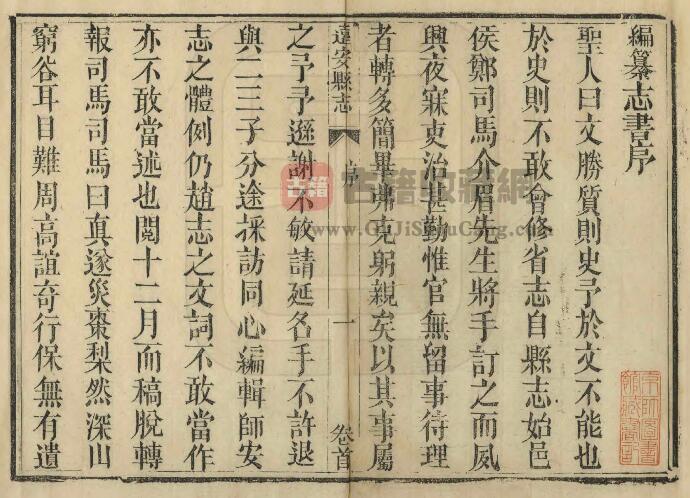 編纂志書序
聖人曰文勝質則史予於文不能也
於史則不敢會修省志自縣志始邑
侯鄭司馬介眉先生將手訂之而夙
興夜寐吏治甚勤惟官無留事待理
者轉多簡畢弗克躬親矣以其事屬
遠安縣志
序
一
卷首
之予予遜謝不敏請延名手不許退
與二三子分途採訪同心編輯師安
志之體例仍趙志之文詞不敢當作
亦不敢當述也閱十二月而稿脫轉
報司馬司馬曰真遂災棗梨然深山
窮谷耳目難周高誼奇行保無有遺
古籍收藏網
www.GuJiShouCang.com